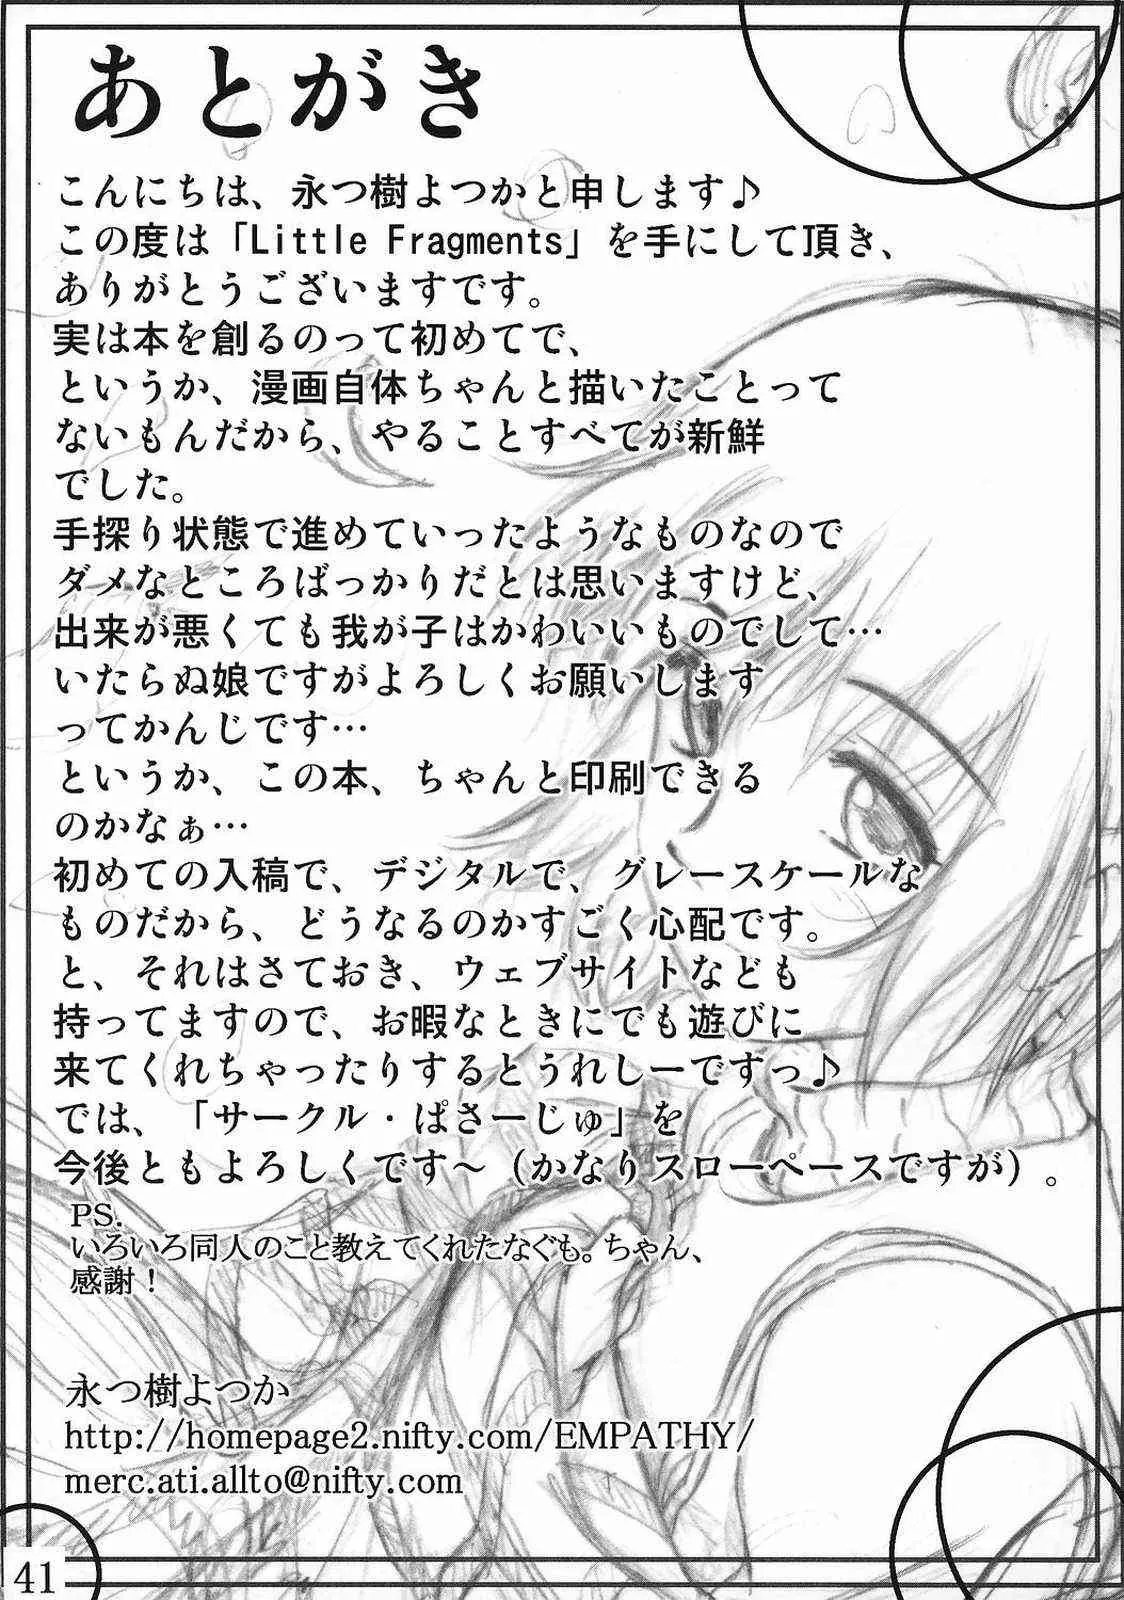 あとがき
こんにちは、永つ樹よつかと申します♪
この度は「Little Fragments」を手にして頂き、
ありがとうございますです。
実は本を創るのって初めてで、
というか、漫画自体ちゃんと描いたことって
ないもんだから、やることすべてが新鮮
でした。
手探り状態で進めていったようなものなので
ダメなところばっかりだとは思いますけど、
出来が悪くても我が子はかわいいものでして…
いたらぬ娘ですがよろしくお願いします
ってかんじです…
というか、この本、ちゃんと印刷できる
のかなぁ…
初めての入稿で、デジタルで、グレースケールな
ものだから、どうなるのかすごく心配です。
と、それはさておき、ウェブサイトなども
持ってますので、お暇なときにでも遊びに
来てくれちゃったりするとうれしーですっ♪
では、「サークル・ぱさーじゅ」を
今後ともよろしくです～（かなりスローペースですが）。
PS.
いろいろ同人のこと教えてくれたなぐも。ちゃん、
感謝！
永つ樹よつか
http://homepage2.nifty.com/EMPATHY/
merc.ati.allto@nifty.com
41